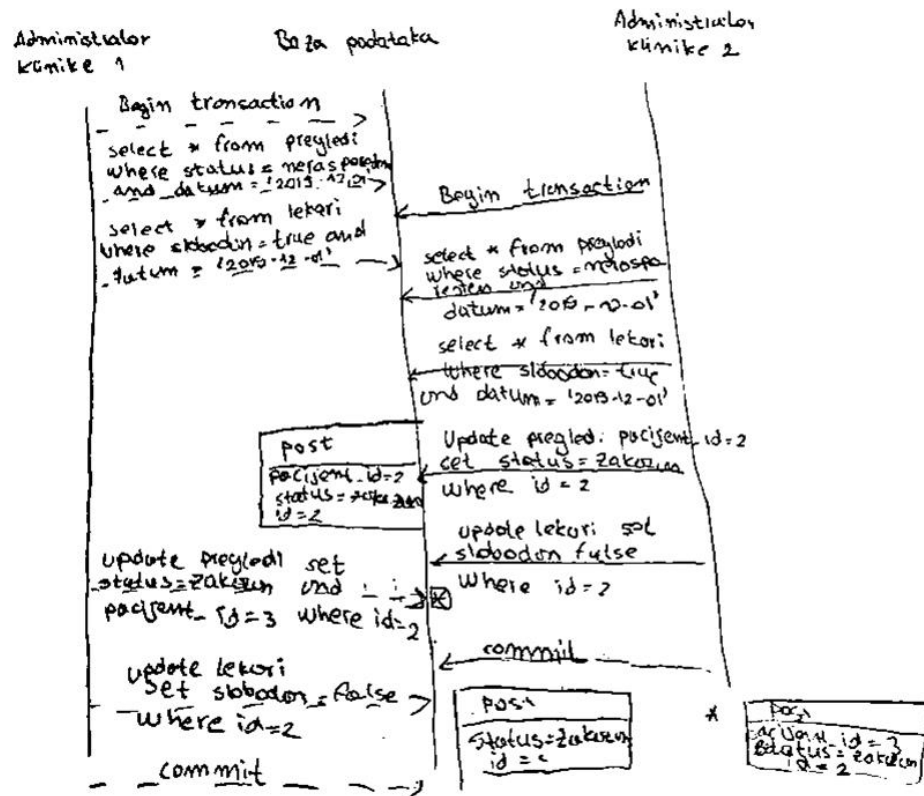 Administrator
klinike 1
Baza podataka
Administrator
klinike 2
Begin transaction
select * from pregledi
where status = neraspoređen
and datum = '2019-12-01'
select * from lekari
where slobodan = true and
datum = '2019-12-01'
Begin transaction
select * from pregledi
where status = neraspo
ređen and
datum = '2019-12-01'
select * from lekari
where slobodan = true
and datum = '2019-12-01'
Update pregledi pacijent_id=2
set status = zakazan
where id = 2
post
pacijent_id=2
status = zakazan
id=2
update lekari set
slobodan false
where id = 2
update pregledi set
status = zakazan and
pacijent_id=3 where id=2
*
commit
update lekari
set slobodan = false
where id=2
commit
post
status = zakazan
id =
*
post
pacijent_id = 3
status = zakazan
id = 2